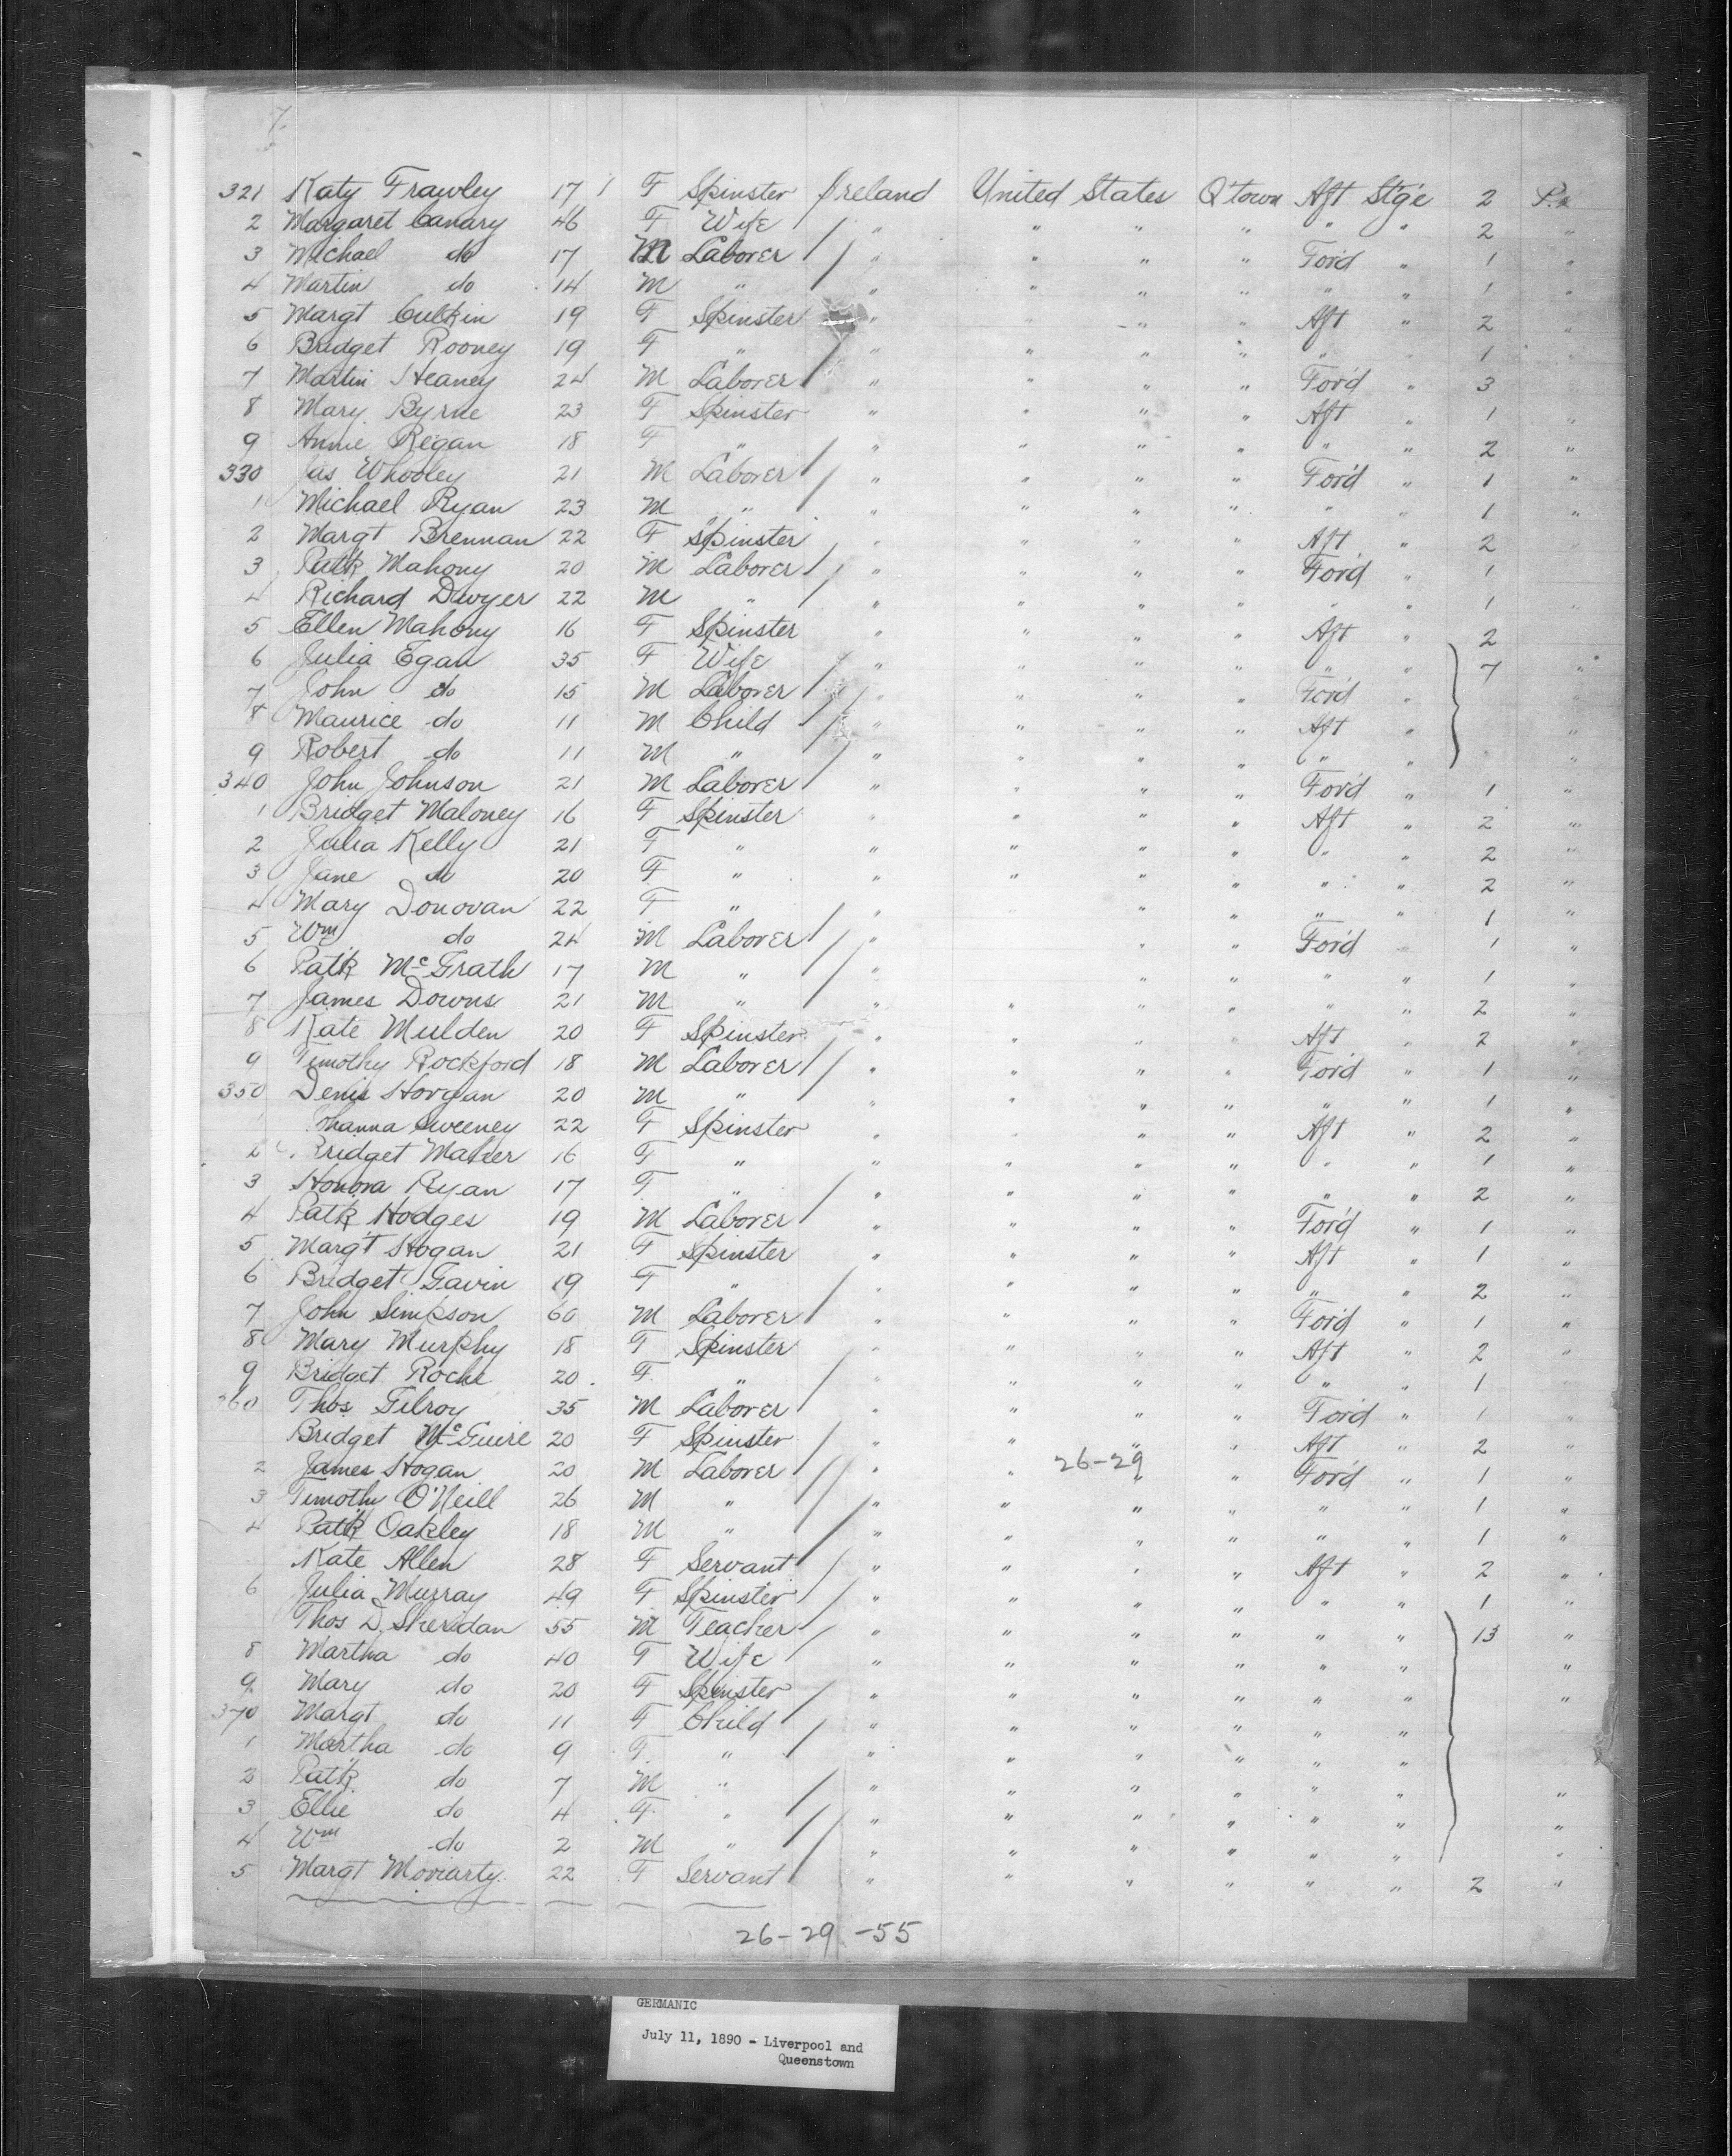 7.
321 Katy Frawley 17 / F Spinster Ireland United States Q'town Aft St'g'e 2
2 Margaret Canary 46 F Wife / " " " " " " 2 "
3 Michael do 17 M Laborer / " " " " For'd " 1 "
4 Martin do 14 M " " " " " " " 1 "
5 Margt Culkin 19 F Spinster " " " Aft " 2 "
6 Bridget Rooney 19 F " / " " " " " 1 "
7 Martin Heaney 24 M Laborer / " " " " For'd " 3 "
8 Mary Byrne 23 F Spinster " " " " Aft " 1 "
9 Annie Regan 18 F " / " " " " " " 2 "
330 Jas Whooley 21 M Laborer / " " " " For'd " 1 "
1 Michael Ryan 23 M " " " " " " " 1 "
2 Margt Brennan 22 F Spinster " " " " Aft " 2
3 Patk Mahony 20 M Laborer / " " " " For'd " 1
4 Richard Dwyer 22 M " / " " " " " " 1
5 Ellen Mahony 16 F Spinster " " " " Aft " 2
6 Julia Egan 35 F Wife / " " " " " " 7 "
7 John do 15 M Laborer / " " " " For'd "
8 Maurice do 11 M Child / " " " " Aft " "
9 Robert do 11 M " / " " " " " " "
340 John Johnson 21 M Laborer / " " " " For'd " 1 "
1 Bridget Maloney 16 F Spinster " " " " Aft " 2 "
2 Julia Kelly 21 F " " " " " " " 2 "
3 Jane do 20 F " " " " " " " 2 "
4 Mary Donovan 22 F " / " " " " " 1 "
5 Wm do 24 M Laborer / " " " For'd " 1 "
6 Patk McGrath 17 M " / " " " " " 1 "
7 James Downs 21 M " " " " " " 2 "
8 Kate Mulden 20 F Spinster " " " " Aft " 2 "
9 Timothy Rockford 18 M Laborer / " " " " For'd " 1 "
350 Denis Horgan 20 M " " " " " " " 1 "
1 Johanna Sweeney 22 F Spinster " " " " Aft " 2 "
2 Bridget Maher 16 F " " " " " " " 1 "
3 Honora Ryan 17 F " / " " " " " " 2 "
4 Patk Hodges 19 M Laborer / " " " " For'd " 1 "
5 Margt Hogan 21 F Spinster " " " " Aft " 1 "
6 Bridget Gavin 19 F " / " " " " " " 2 "
7 John Simpson 60 M Laborer / " " " " For'd " 1 "
8 Mary Murphy 18 F Spinster " " " " Aft " 2 "
9 Bridget Roche 20 F " / " " " " " " 1 "
360 Thos Gilroy 35 M Laborer " " " " For'd " 1 "
Bridget McGuire 20 F Spinster / " " " " Aft " 2 "
2 James Hogan 20 M Laborer // " " 26-29 " " For'd " 1 "
3 Timothy O'Neill 26 M " // " " " " " " 1 "
4 Patk Oakley 18 M " / " " " " " " 1 "
Kate Allen 28 F Servant / " " " " Aft " 2 "
6 Julia Murray 49 F Spinster / " " " " " " 1 "
Thos D. Sheridan 55 M Teacher / " " " " " " 13 "
8 Martha do 40 F Wife " " " " " " "
9 Mary do 20 F Spinster / " " " " " " "
370 Margt do 11 F Child / " " " " " "
1 Martha do 9 F " / " " " " " "
2 Patk do 7 M " / " " " " " " "
3 Ellie do 4 F " / " " " " " " "
4 Wm do 2 M " / " " " " " " "
5 Margt Moriarty 22 F Servant " " " " " " 2 "
26-29-55
GERMANIC
July 11, 1890 - Liverpool and
Queenstown